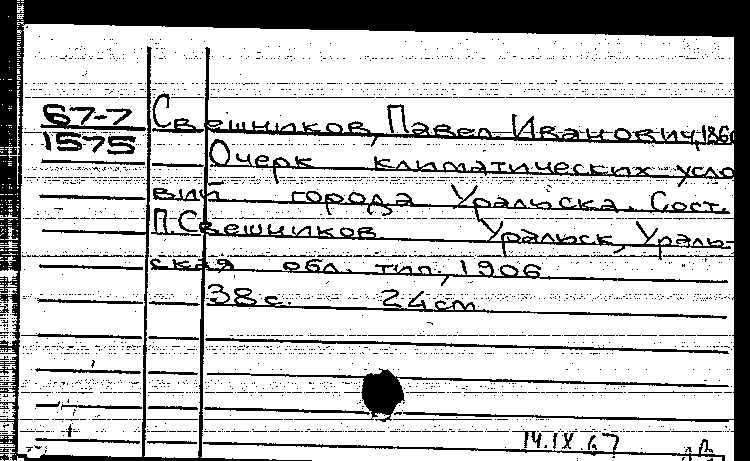 67-7 Свешников, Павел Иванович, 186
1575 Очерк климатических усло
вий города Уральска. Сост.
П. Свешников Уральск, Ураль-
ская обл. тип., 1906
38 с. 24 см
14.IX 67